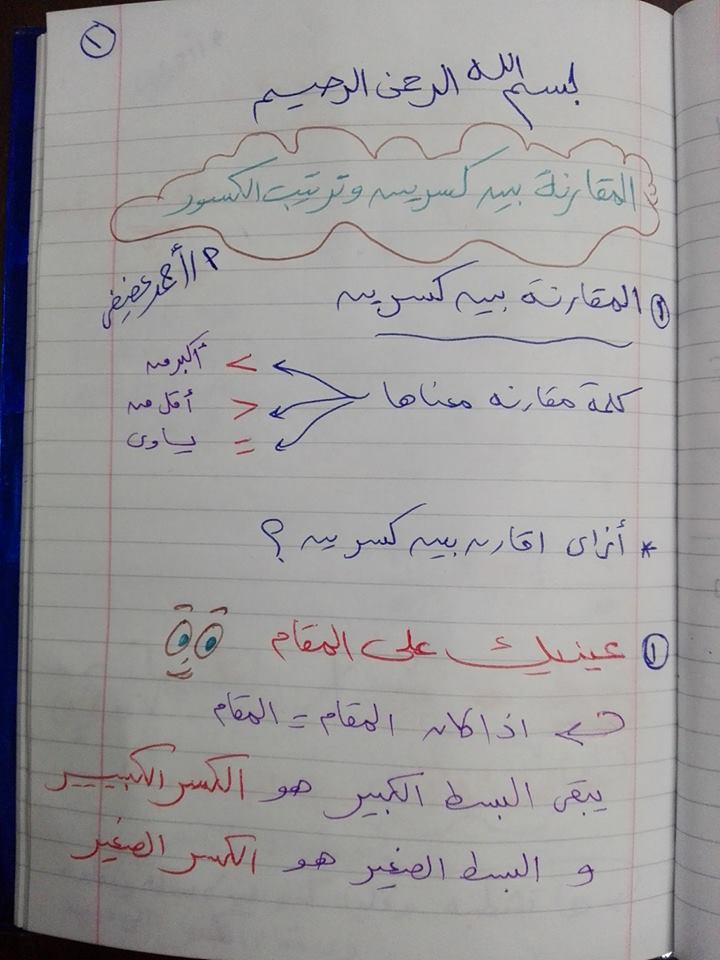 ١
بسم الله الرحمن الرحيم
المقارنة بين كسرين وترتيب الكسور
م/أحمد عفيفي
١ المقارنة بين كسرين
كلمة مقارنه معناها
> أكبر من
< أقل من
= يساوى
* أزاى اقارن بين كسرين ؟
١ عينيك على المقام
اذا كان المقام = المقام
يبقى البسط الكبير هو الكسر الكبيـــر
و البسط الصغير هو الكسر الصغير